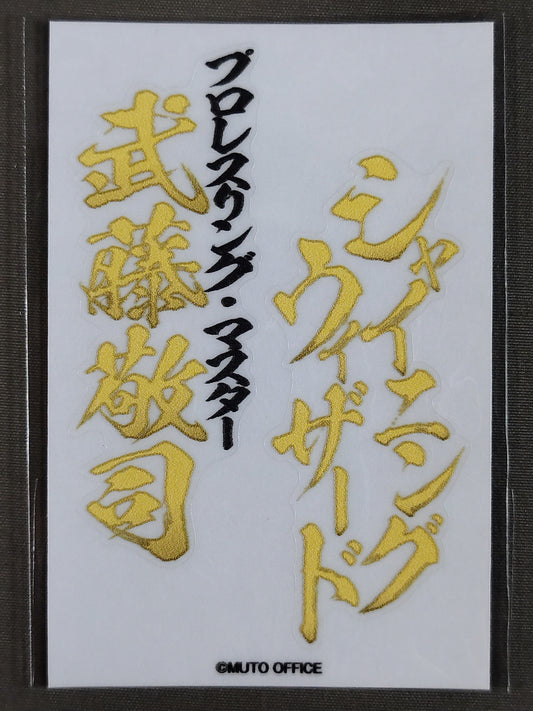 シャイニング
ウィザード
プロレスリング・マスター
武藤敬司
©MUTO OFFICE